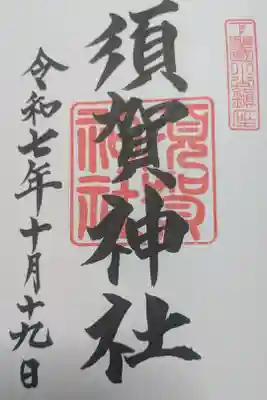 須賀神社
須賀神社
令和七年十月十九日